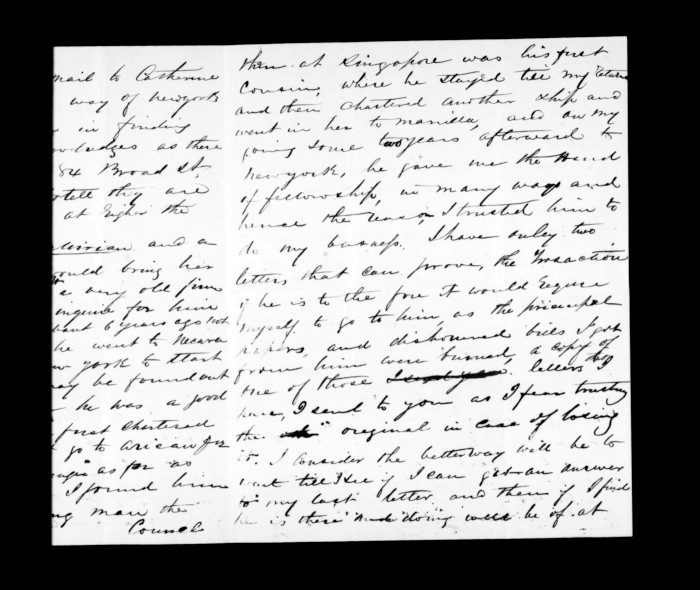 mail to Catherine
way of newyork
in finding
as there
84 Broad St,
they are
at Eigher the
and a
would bring her
a very old firm
inquire for him
about 6 years ago not
he went to
york to start
may be found out
he was a good
first chartered
go to
as far as
I found him
man the
Counel
then at Singapore was his first
Cousin, where he stayed till my return
and then chartered another ship and
went in her to manilla, and on my
going some two years afterward to
newyork, he gave me the Hand
of fellowship, in many ways and
hence the reason, I trusted him to
do my business. I have only two
letters that can prove, the Transaction
if he is to the fore it would Require
myself to go to him as the principal
papers, and dishonured bills I got
from him were burned, a copy of
one of those letters
have, I sent to you as I fear trusting
the original in case of losing
it. I consider the better way will be to
wait till I see if I can get an answer
to my last letter, and then if I find
he is there and doing well be of at